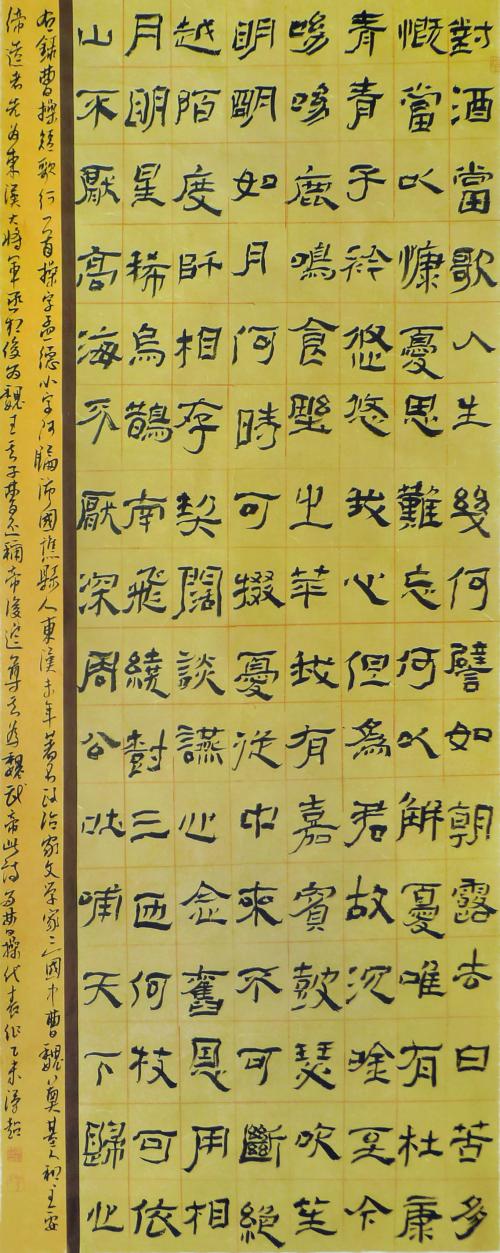 對酒當歌人生幾何譬如朝露去日苦多
慨當以慷憂思難忘何以解憂唯有杜康
青青子衿悠悠我心但為君故沉唫至今
呦呦鹿鳴食野之苹我有嘉賓鼓瑟吹笙
明明如月何時可掇憂從中來不可斷絕
越陌度阡相存契闊談讌心念舊恩用相
月明星稀烏鵲南飛繞對三匝何枝可依
山不厭高海不厭深周公吐哺天下歸心
右錄曹操短歌行一首操字孟德小字阿瞞沛國譙縣人東漢末年著名政治家文學家三國中曹魏奠基人和主要
締造者先為東漢大將軍丞相後為魏王其子曹丕稱帝後追尊其為魏武帝此詩為曹操代表作乙未